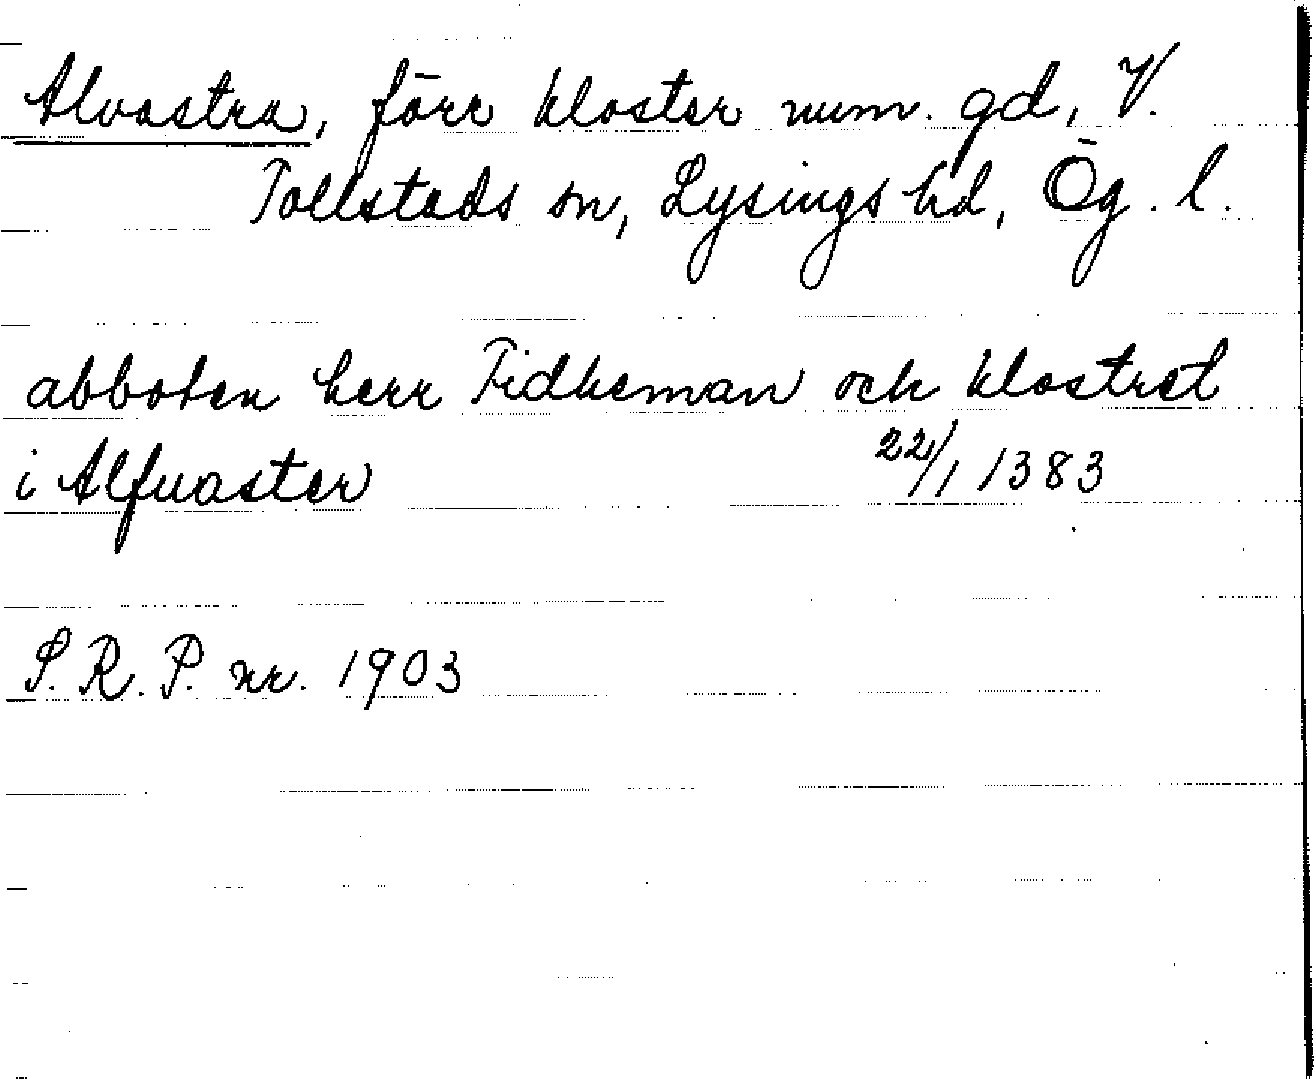 Alvastra, förr kloster num. gd, V.
Tollstads sn, Lysings hd, Ög. l.
abboten herr Tidkeman och klostret
i Alfuaster 22/1 1383
S. R. P. nr. 1903